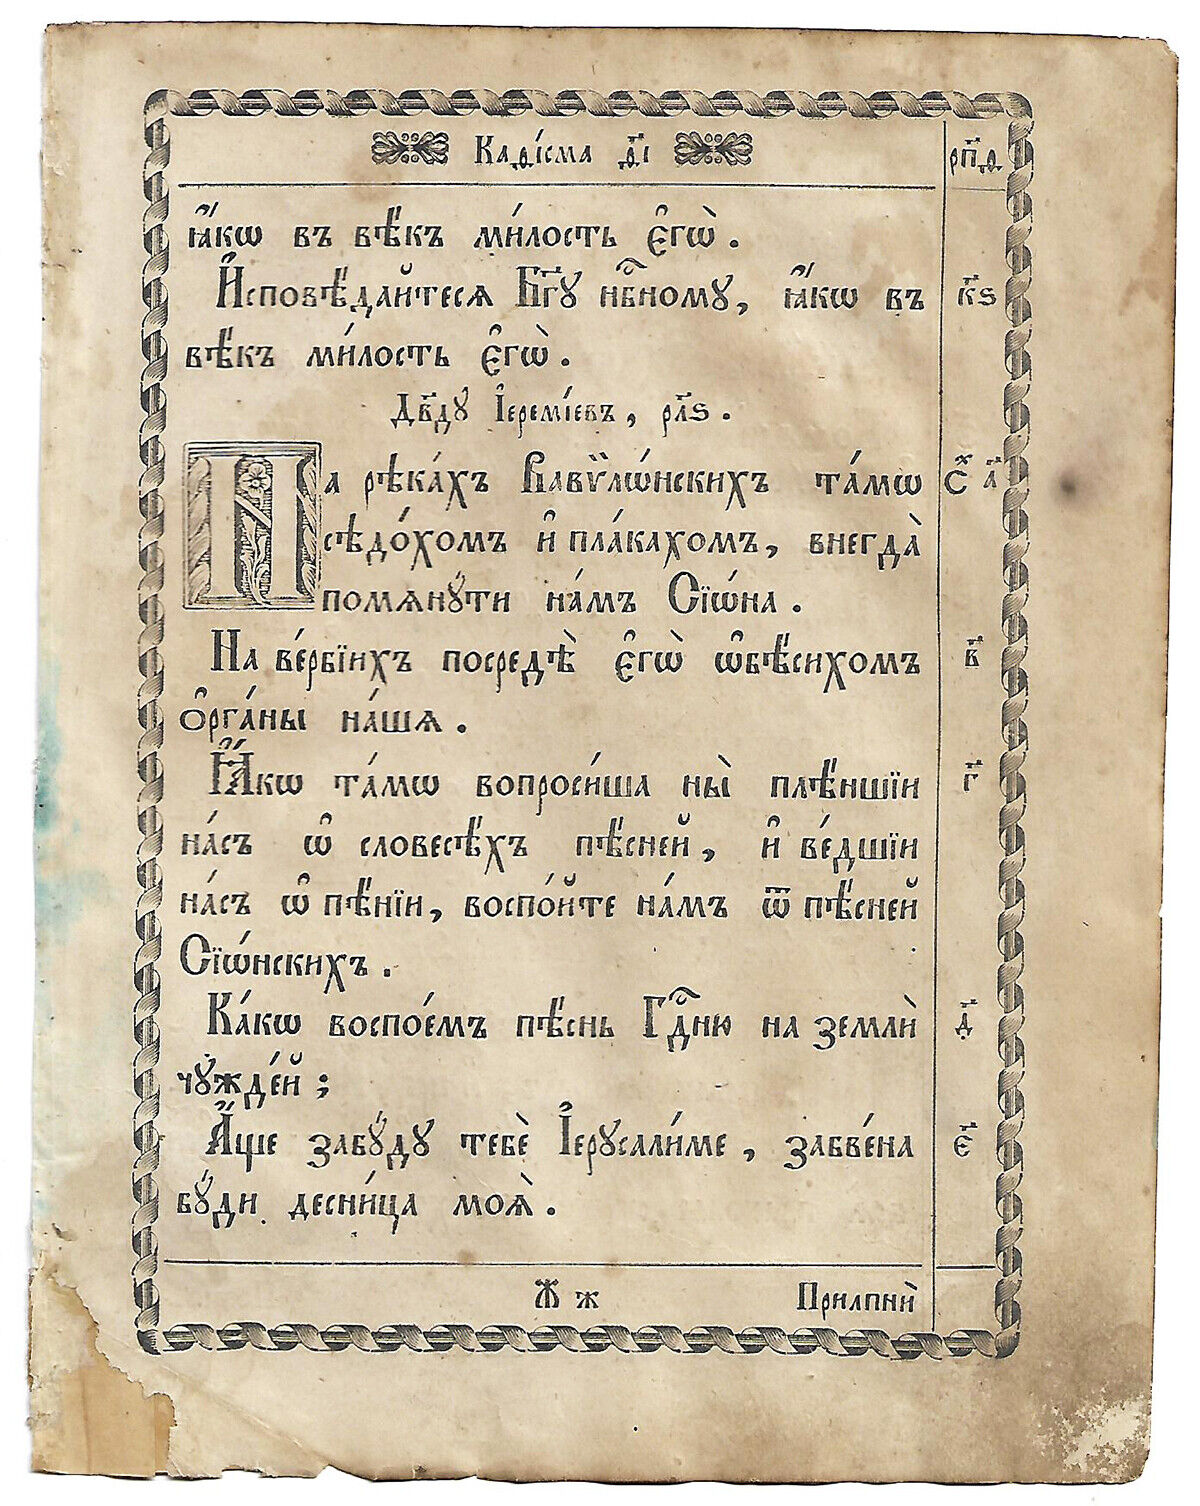 Каѳі́сма ѳ҃і рп҃ѳ
ꙗ҆́кѡ въ вѣ́къ ми́лость є҆гѡ̀.
И҆сповѣ́дайтесѧ Бг҃ꙋ нбⷭ҇номꙋ, ꙗ҆́кѡ въ к҃ѕ
вѣ́къ ми́лость є҆гѡ̀.
Дв҃дꙋ І҆еремі́евъ, рл҃ѕ.
На рѣка́хъ Вавѷлѡ́нскихъ та́мѡ сⷯ а҃
сѣдо́хомъ и҆ пла́кахомъ, внегда̀
помѧнꙋ́ти на́мъ Сїѡ́на.
На ве́рбїихъ посредѣ̀ є҆гѡ̀ ѡ҆бѣ́сихомъ в҃
ѻ҆рга́ны на́шѧ.
Ꙗ҆́кѡ та́мѡ вопроси́ша ны̀ плѣ́ншїи г҃
на́съ ѡ҆ словесѣ́хъ пѣ́сней, и҆ ве́дшїи
на́съ ѡ҆ пѣ́нїи, воспо́йте на́мъ ѿ пѣ́сней
Сїѡ́нскихъ.
Ка́кѡ воспое́мъ пѣ́снь Гдⷭ҇ню на землѝ д҃
чꙋжде́й;
А҆́ще забꙋ́дꙋ тебѐ І҆ерꙋсали́ме, забве́на є҃
бꙋ́ди десни́ца моѧ̀.
Ѫ ж Прилпнѝ